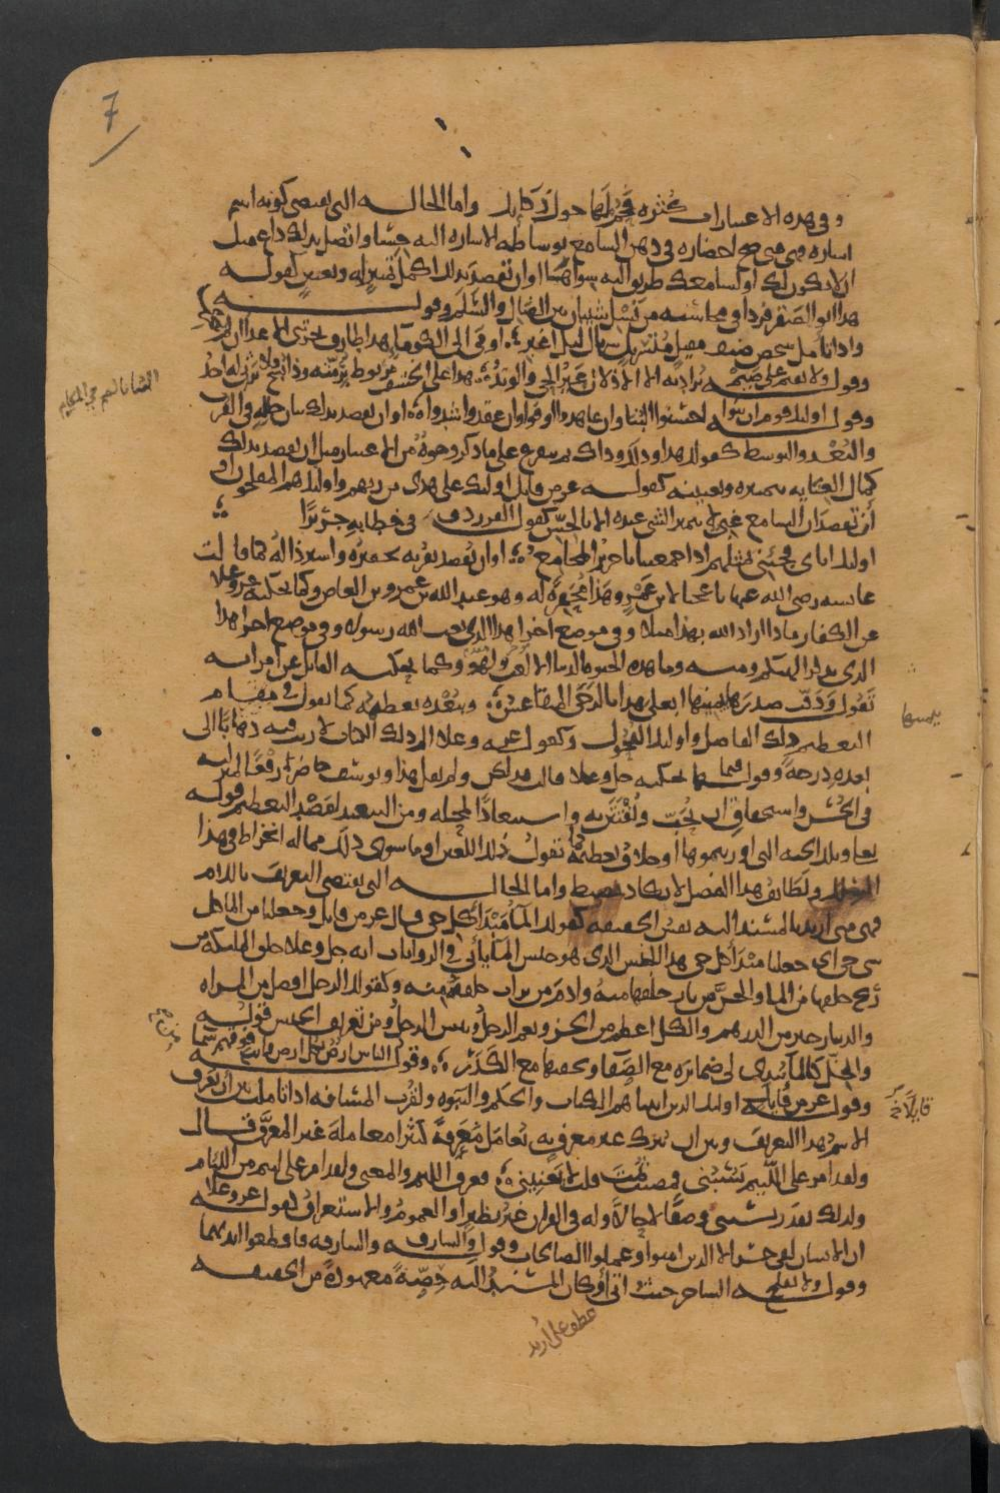 7
وفي هذه الاعتبارات كثرة فحم لها حول ذكائك واما الحالة التي تقتضي كونه اسم
اشارة فهي متى صح احضاره في ذهن السامع بوساطة الاشارة اليه حسا واتصل بذلك داع مثل
ان لا يكون لك او لسامعك طريق اليه سواها او ان تقصد بذلك اكمل تمييز له وتعيين كقوله
هذا ابو الصقر فردا في محاسنه من نسل شيبان بين الضال والسلم وقوله
واذا تأمل شخص ضيف مقبل متسربل سربال ليل اغبر اوفى الى الكوماء هذا طارق نحرتني الاعداء ان لم تنحري
وقوله ولا يقيم على ضيم يراد به الا الاذلان عير الحي والوتد هذا على الخسف مربوط برمته وذا يشج ولا يرثي له احد
وقوله اولئك قوم ان بنوا احسنوا البنا وان عاهدوا اوفوا وان عقدوا شدوا او ان تقصد بذلك بيان حاله في القرب
والبعد والتوسط كقولك هذا وذلك وذاك ثم يتفرع على ما ذكر وجوه من الاعتبار مثل ان تقصد بذلك
كمال العناية بتمييزه وتعيينه كقوله عز من قايل اولئك على هدى من ربهم واولئك هم المفلحون او
ان تقصد ان السامع غبي لا يتميز الشي عنده الا بالحس كقول الفرزدق في خطابه جريرا
اولئك اباي فجئني بمثلهم اذا جمعتنا يا جرير المجامع او ان تقصد بقربه تحقيره واسترذاله كما قالت
عايشه رضي الله عنها يا عجبا لابن عمرو هذا محقرة له وهو عبد الله بن عمرو بن العاص وكما يحكيه عز وعلا
عن الكفار ماذا اراد الله بهذا مثلا وفي موضع اخر اهذا الذي بعث الله رسولا وفي موضع اخر اهذا
الذي يذكر الهتكم ومنه وما هذه الحيوة الدنيا الا لعب ولهو وكما يحكيه القايل عن امراته
تقول ودقت صدرها بيمينها ابعلي هذا بالرحى المتقاعس وببعده تعظيمه كما تقول في مقام
التعظيم ذلك الفاضل واولئك الفحول وكقوله عز وعلا الم ذلك الكتاب لا ريب فيه ذهابا الى
بعده درجة وقولها فيما يحكيه جل وعلا قالت فذلكن ولم تقل هذا ويوسف حاضر رفعا لمنزلته
في الحسن واستحقاق ان يحب ويفتتن به واستبعادا لمحله ومن التبعيد لقصد التعظيم قوله
تعالى وتلك الجنة التي اورثتموها او خلاف تعظيمه كما تقول ذلك اللعين او ما سوى ذلك مما له انخراط في هذا
السلك ولطائف هذا الفصل لا تكاد تضبط واما الحالة التي تقتضي التعريف باللام
فهي متى اريد بالمسند اليه نفس الحقيقة كقولك الماء مبدا كل حي قال عز من قايل وجعلنا من الماء كل
شي حي اي جعلنا مبدا كل حي هذا الجنس الذي هو جنس الماء ياتي في الروايات انه جل وعلا خلق الملائكة من
ريح خلقها من الماء والجن من نار خلقها منه وادم من تراب خلقه منه وكقولك الرجل افضل من المراه
والدينار خير من الدرهم والكل اعظم من الجزء ونعم الرجل وبئس الرجل ومن تعريف الجنس قوله
والخل كالماء يبدي لي ضمائره مع الصفا ويخفيها مع الكدر وقوله الناس ارض بكل ارض وانت من فوقهم سما
وقوله عز من قايل اولئك الذين اتيناهم الكتاب والحكم والنبوة ولقرب المسافة اذا تاملت بين ان يعرف
الاسم هذا التعريف وبين ان يترك غير معرف به يعامل معرفه كثيرا معاملة غير المعرف قال
ولقد امر على اللئيم يسبني فمضيت ثمت قلت لا يعنيني فعرف اللئيم والمعنى ولقد امر على لئيم من اللئام
ولذلك يقدر يسبني وصفا لا حالا وله في القران غير نظير او العموم والاستغراق كقوله عز وعلا
ان الانسان لفي خسر الا الذين امنوا وعملوا الصالحات وقوله والسارق والسارقة فاقطعوا ايديهما
وقوله ولا يفلح الساحر حيث اتى او كان المسند اليه حصة معهودة من الحقيقة
عطف على اريد